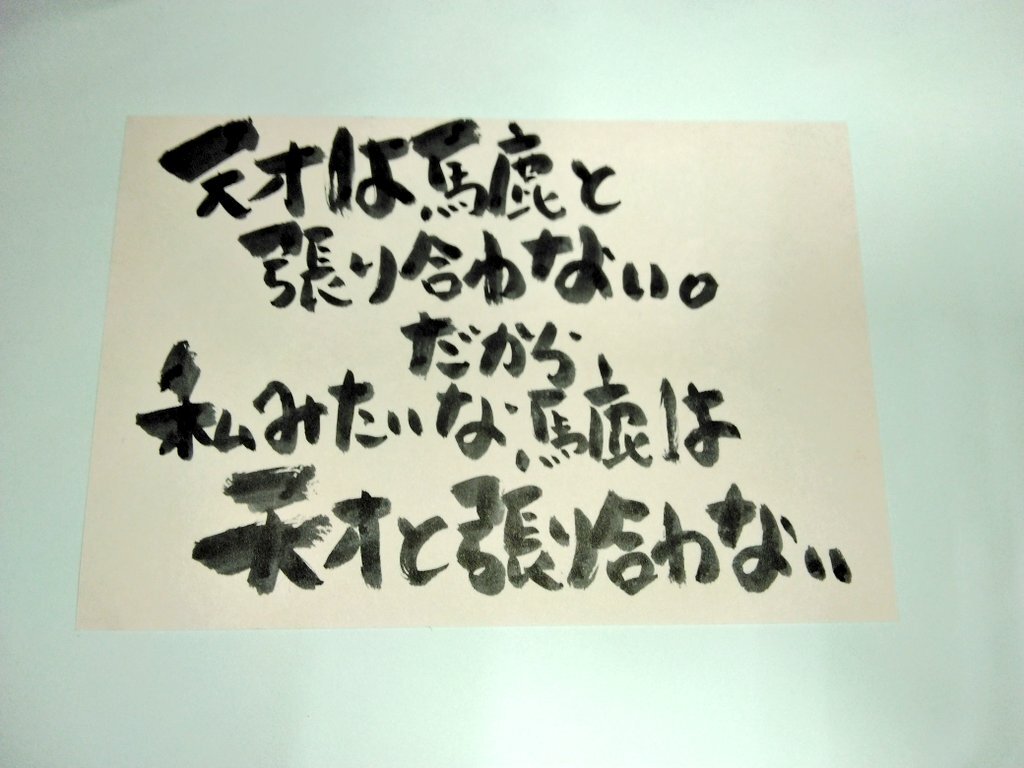 天才は馬鹿と
張り合わない。
だから
私みたいな馬鹿は
天才と張り合わない